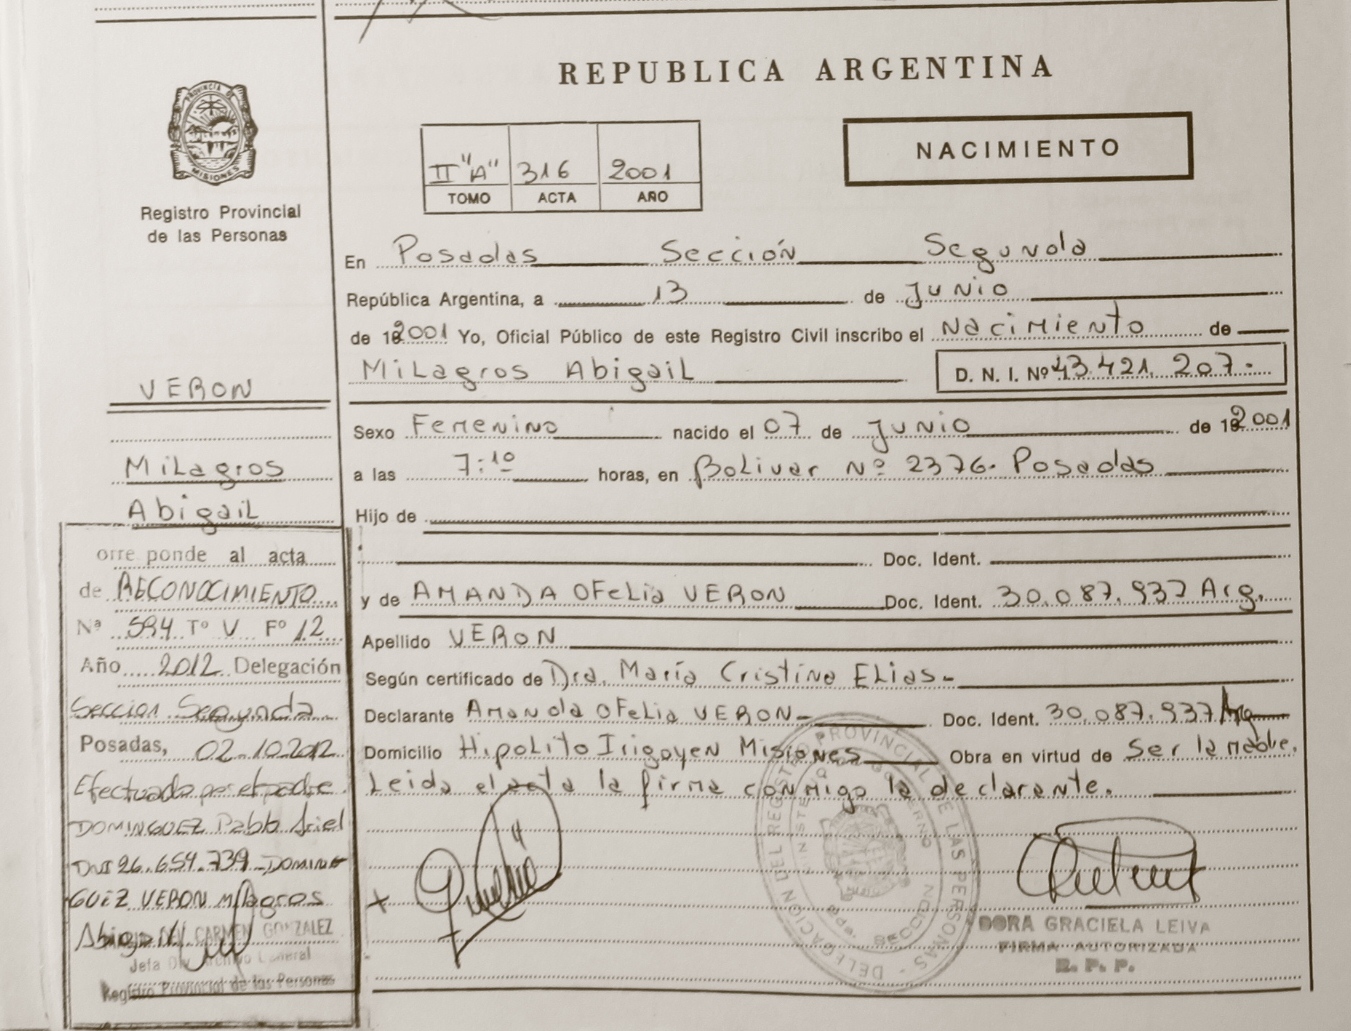 REPUBLICA ARGENTINA
PROVINCIA DE
MISIONES
Registro Provincial
de las Personas
II "A" 316 2001
TOMO ACTA AÑO
NACIMIENTO
En Posadas Sección Segunda
República Argentina, a 13 de Junio
de 2001 Yo, Oficial Público de este Registro Civil inscribo el Nacimiento de
Milagros Abigail D. N. I. Nº 43.421.207.-
VERON
Milagros
Abigail
Sexo Femenino nacido el 07 de Junio de 2001
a las 7:10 horas, en Bolivar Nº 2376. Posadas
Hijo de
Doc. Ident.
y de AMANDA OFelia VERON Doc. Ident. 30.087.937 Arg.
Apellido VERON
Según certificado de Dra. María Cristina Elias.-
Declarante Amanda OFelia VERON- Doc. Ident. 30.087.937 Arg
Domicilio Hipolito Irigoyen Misiones Obra en virtud de Ser la madre.
Leida el acta la firma conmigo la declarante.
orre ponde al acta
de RECONOCIMIENTO
Nª 594 Tº V Fº 12
Año 2012 Delegación
Seccion Segunda
Posadas, 02-10-2012
Efectuado por el padre
DOMINGUEZ Pablo Ariel
DNI 26.654.739 - DOMIN
GUEZ VERON Milagros
Abigail
DEL CARMEN GONZALEZ
Jefa Div. Archivo General
Registro Provincial de las Personas
DELEGACION DEL REGISTRO PROVINCIAL DE LAS PERSONAS
MINISTERIO DE GOBIERNO
SECCION
DORA GRACIELA LEIVA
FIRMA AUTORIZADA
R. P. P.